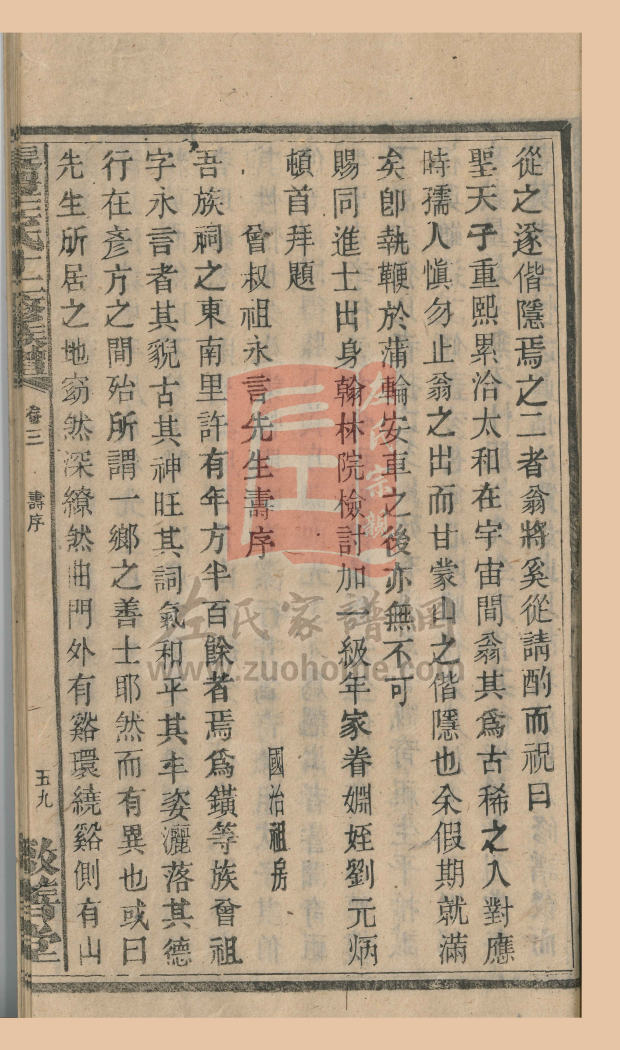 從之遂偕隱焉之二者翁將奚從請酌而祝曰
聖天子重熙累洽太和在宇宙間翁其為古稀之人對應
時孺人慎勿止翁之出而甘蒙山之偕隱也余假期就滿
矣卽執鞭於蒲輪安車之後亦無不可
賜同進士出身翰林院檢討加一級年家眷姻姪劉元炳
頓首拜題
曾叔祖永言先生壽序
國治祖房
吾族祠之東南里許有年方半百餘者焉為鐄等族曾祖
字永言者其貎古其神旺其詞氣和平其丰姿灑落其德
行在彥方之間殆所謂一鄉之善士耶然而有異也或曰
先生所居之地窈然深繚然曲門外有谿環繞谿側有山
左氏十二修族譜
卷三
壽序
五九
敬書堂
左氏宗親
左氏家譜網
www.zuohome.com